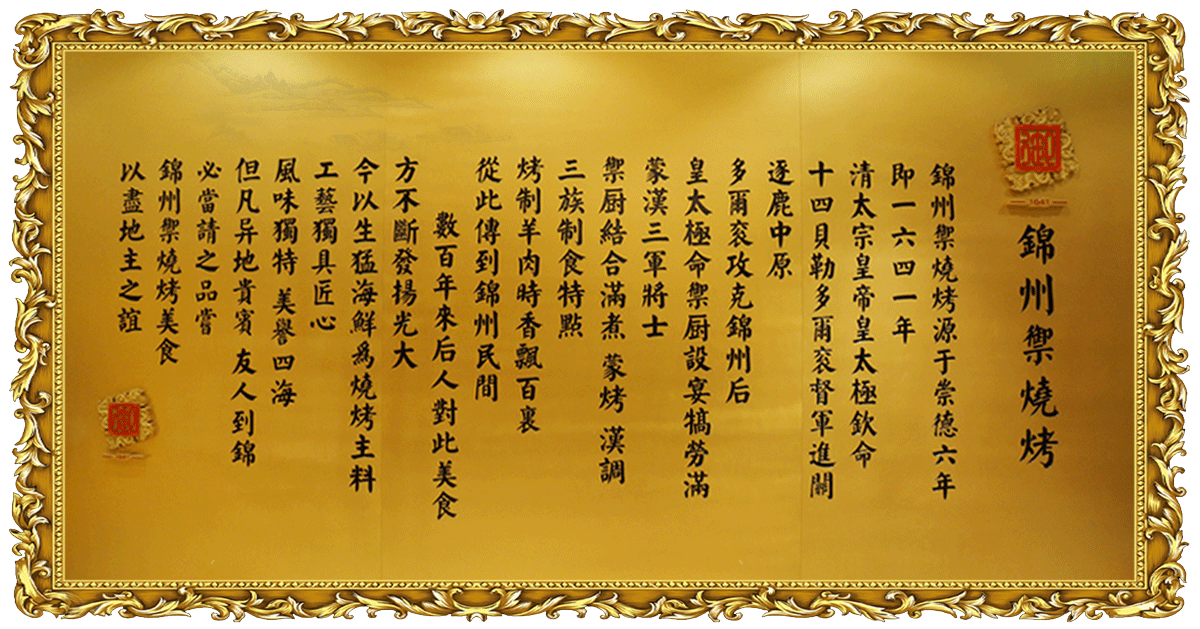 御
1641
錦州禦燒烤
錦州禦燒烤源于崇德六年
即一六四一年
清太宗皇帝皇太極欽命
十四貝勒多爾衮督軍進關
逐鹿中原
多爾衮攻克錦州后
皇太極命禦厨設宴犒勞滿
蒙漢三軍將士
禦厨結合滿煮 蒙烤 漢調
三族制食特點
烤制羊肉時香飄百裏
從此傳到錦州民間
數百年來后人對此美食
方不斷發揚光大
今以生猛海鮮爲燒烤主料
工藝獨具匠心
風味獨特 美譽四海
但凡异地貴賓 友人到錦
必當請之品嘗
錦州禦燒烤美食
以盡地主之誼
御